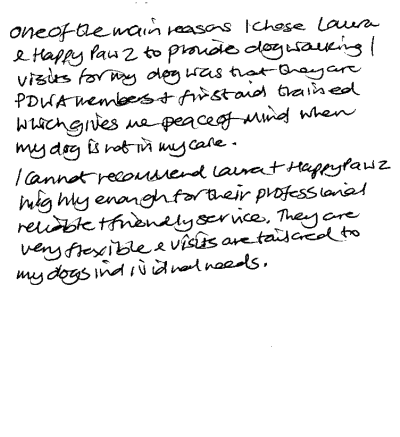 one of the main reasons I chose Laura
& Happy Pawz to provide dog walking /
visits for my dog was that they are
PDWA members + first aid trained
which gives me peace of mind when
my dog is not in my care.
I cannot recommend Laura + Happy Pawz
highly enough for their professional
reliable + friendly service. They are
very flexible & visits are tailored to
my dogs individual needs.